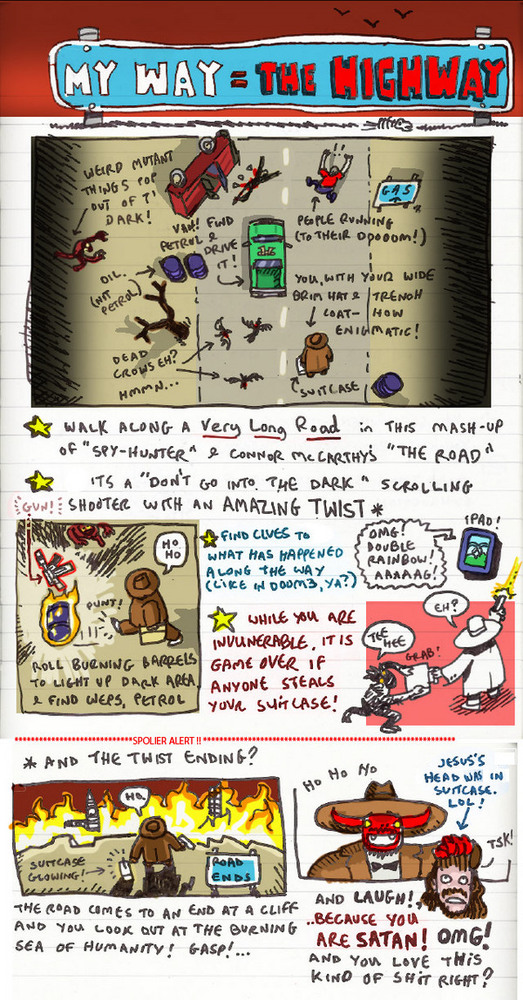 MY WAY = THE HIGHWAY
WEIRD MUTANT
THINGS POP
OUT OF T'
DARK!
GAS
VAN! FIND
PETROL &
DRIVE
IT!
PEOPLE RUNNING
(TO THEIR DOOOOM!)
OIL.
(NOT
PETROL)
YOU, WITH YOUR WIDE
BRIM HAT & TRENCH
COAT- HOW
ENIGMATIC!
DEAD
CROWS EH?
HMMN...
SUITCASE
WALK ALONG A Very Long Road in THIS MASH-UP
OF "SPY-HUNTER" & CONNOR McCARTHY'S "THE ROAD"
ITS A "DON'T GO INTO THE DARK" SCROLLING
SHOOTER WITH AN AMAZING TWIST *
GUN!
HO
HO
PUNT!
ROLL BURNING BARRELS
TO LIGHT UP DARK AREA
& FIND WEPS, PETROL
FIND CLUES TO
WHAT HAS HAPPENED
ALONG THE WAY
(LIKE IN DOOM3, YA?)
OMG!
DOUBLE
RAINBOW!
AAAAAG!
IPAD!
WHILE YOU ARE
INVUNERABLE, IT IS
GAME OVER IF
ANYONE STEALS
YOUR SUITCASE!
EH?
TEE
HEE
GRAB!
SPOLIER ALERT !!
* AND THE TWIST ENDING?
HO.
SUITCASE
GLOWING!
ROAD
ENDS
THE ROAD COMES TO AN END AT A CLIFF
AND YOU LOOK OUT AT THE BURNING
SEA OF HUMANITY! GASP!...
HO HO HO
JESUS'S
HEAD WAS IN
SUITCASE.
LOL!
TSK!
AND LAUGH!,
..BECAUSE YOU
ARE SATAN! OMG!
AND YOU LOVE THIS
KIND OF SHIT RIGHT?